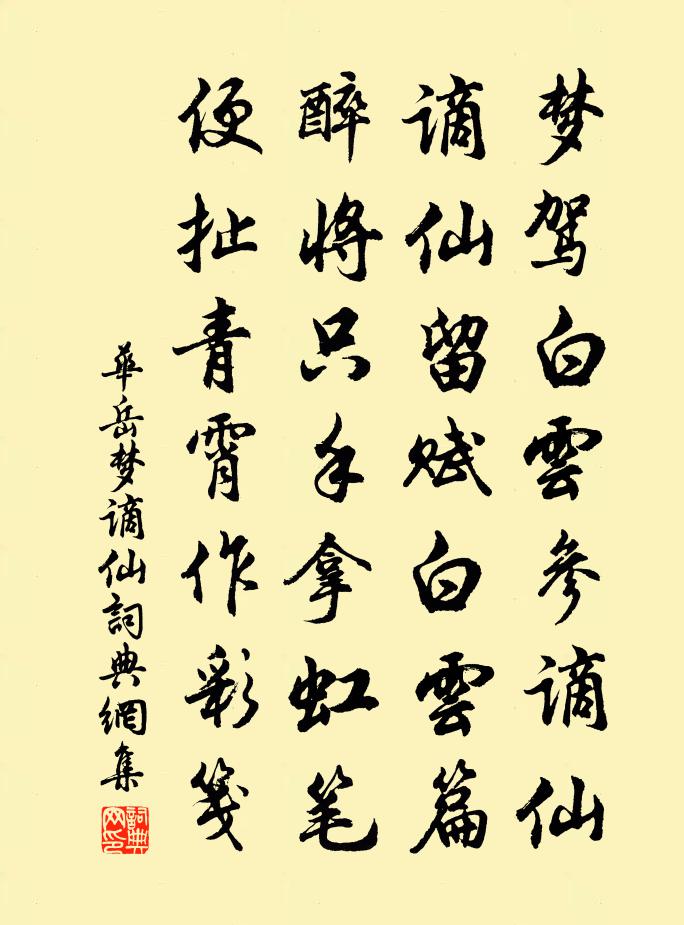 梦驾白雲参谪仙
谪仙留赋白雲篇
醉将只手拿虹笔
便扯青霄作彩笺
華岳梦谪仙詞典網集
詞典网印